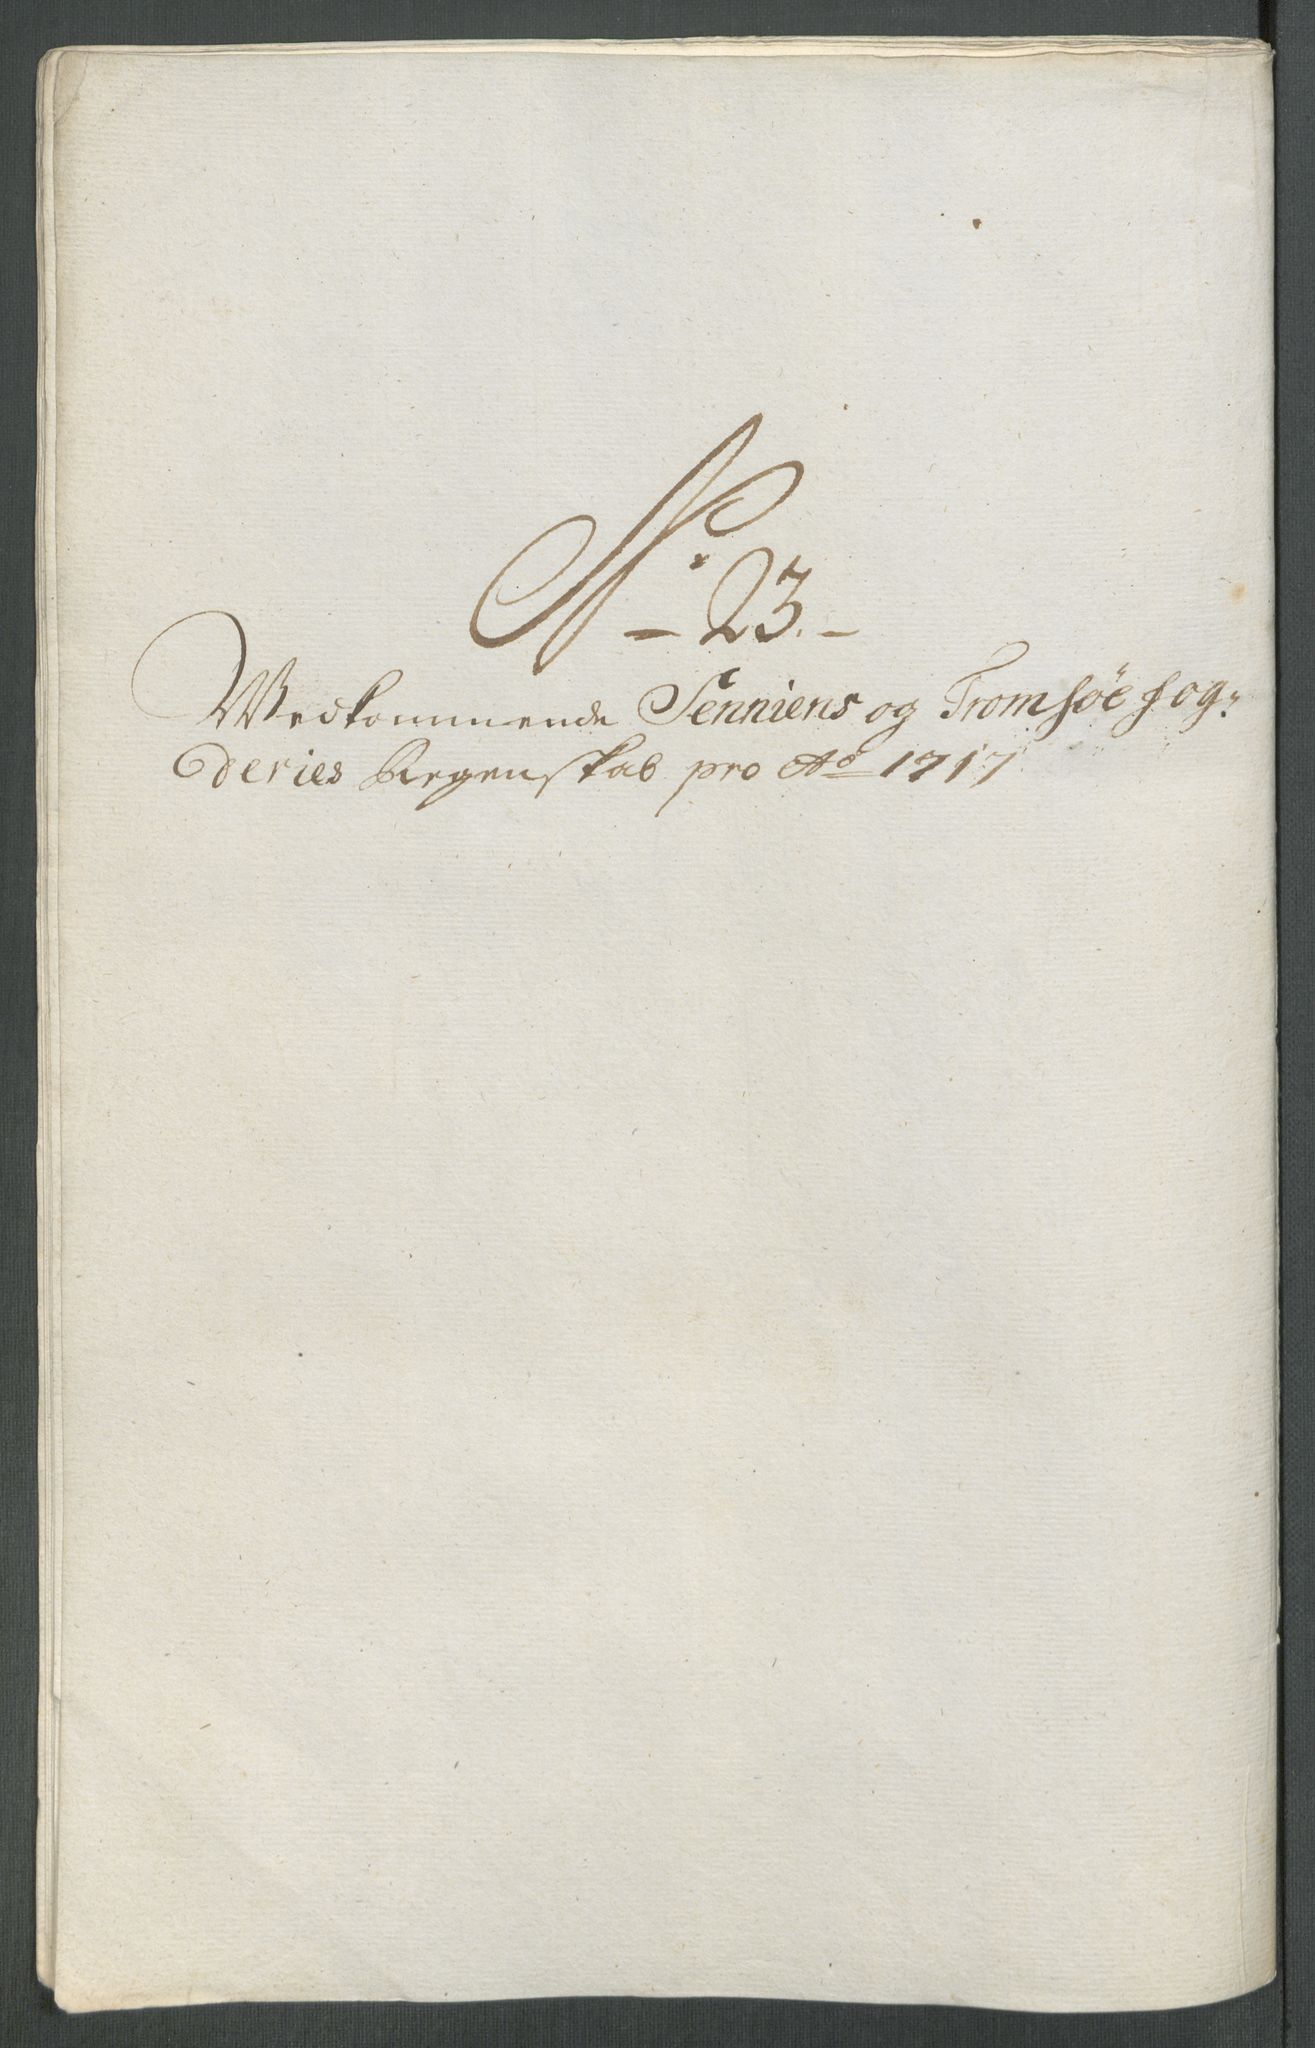 No
- 23. -
Vedkommende Senniens og Tromsöe fog-
deries Regenskab pro Ao 1717